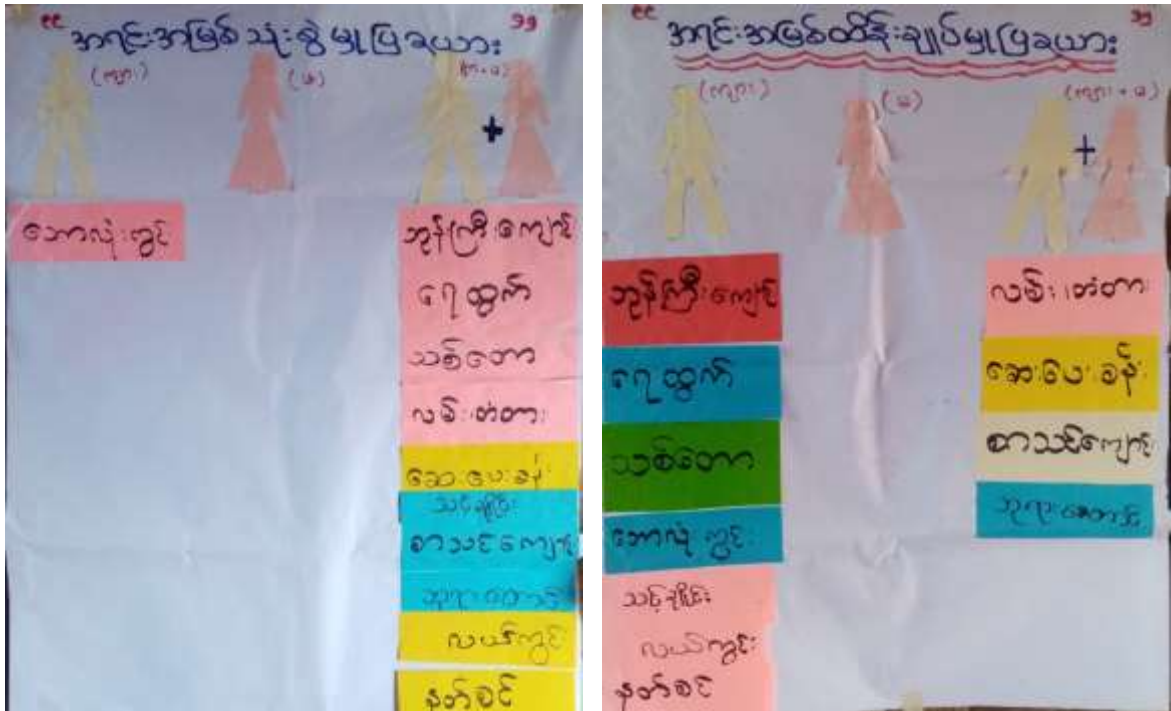 “ အရင်းအမြစ်သုံးစွဲမှုပြဇယား ”
(ကျား)
(မ)
(ကျား + မ)
+
ဘောလုံးကွင်း
ဘုန်းကြီးကျောင်း
ရေထွက်
သစ်တော
လမ်း၊တံတား
ဆေးပေးခန်း
သင်္ချိုင်း
စာသင်ကျောင်း
ဘုရားတောင်
လယ်ကွင်း
နတ်စင်
“ အရင်းအမြစ်ထိန်းချုပ်မှုပြဇယား ”
(ကျား)
(မ)
(ကျား + မ)
+
ဘုန်းကြီးကျောင်း
ရေထွက်
သစ်တော
ဘောလုံးကွင်း
သင်္ချိုင်း
လယ်ကွင်း
နတ်စင်
လမ်း၊တံတား
ဆေးပေးခန်း
စာသင်ကျောင်း
ဘုရားတောင်